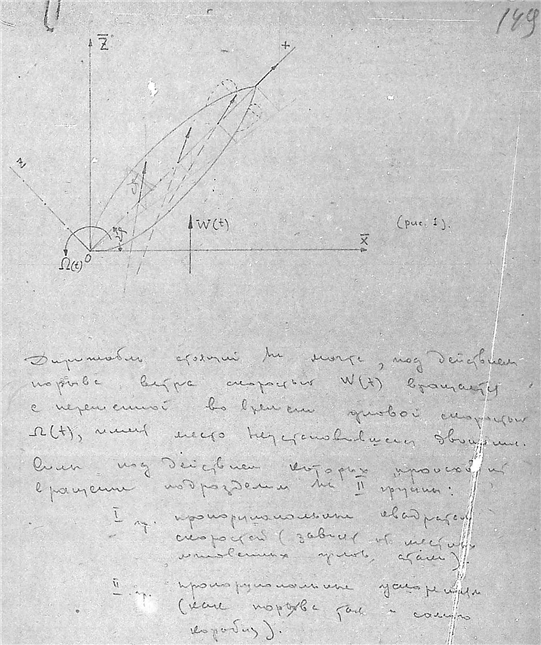 149
Z
+
z
W(t)
(рис. 1).
X
Ω(t)
O
Дирижабль стоящий на мачте, под действием
порыва ветра скоростью W(t) вращается
с переменной во времени угловой скоростью
Ω(t), имеет место неустановившееся движение.
Силы под действием которых происходит
вращение подразделим на II группы:
I гр. пропорциональные квадратам
скоростей (зависят от местных
мгновенных углов атаки).
II гр. пропорциональные ускорениям
(как порыва так и самого
корабля).